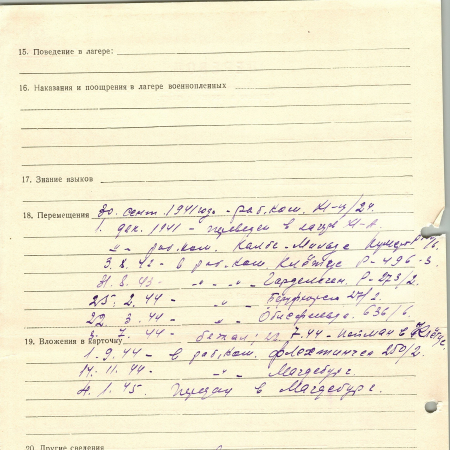 15. Поведение в лагере:
16. Наказания и поощрения в лагере военнопленных
17. Знание языков
18. Перемещения 30. сент. 1941 года - раб. ком. XI-ц/24
1. дек. 1941 - переведен в лагерь XI-A.
-"- раб. ком. Кальбе-Мильде
3. 8. 42 - в раб. ком. Клётце Р-496-3
43 - " - " - Гарделеген. Р-273/2.
25. 2. 44 - " - 27/2.
22. 3. 44 - " - 636/6.
3. 7. 44 - бежал; 7.44 - пойман в Клётце.
19. Вложения в карточку
1. 9. 44 - в раб. ком. 250/2.
14. 11. 44 - " - Магдебург.
4. 1. 45. Передан в Магдебург.
20. Другие сведения